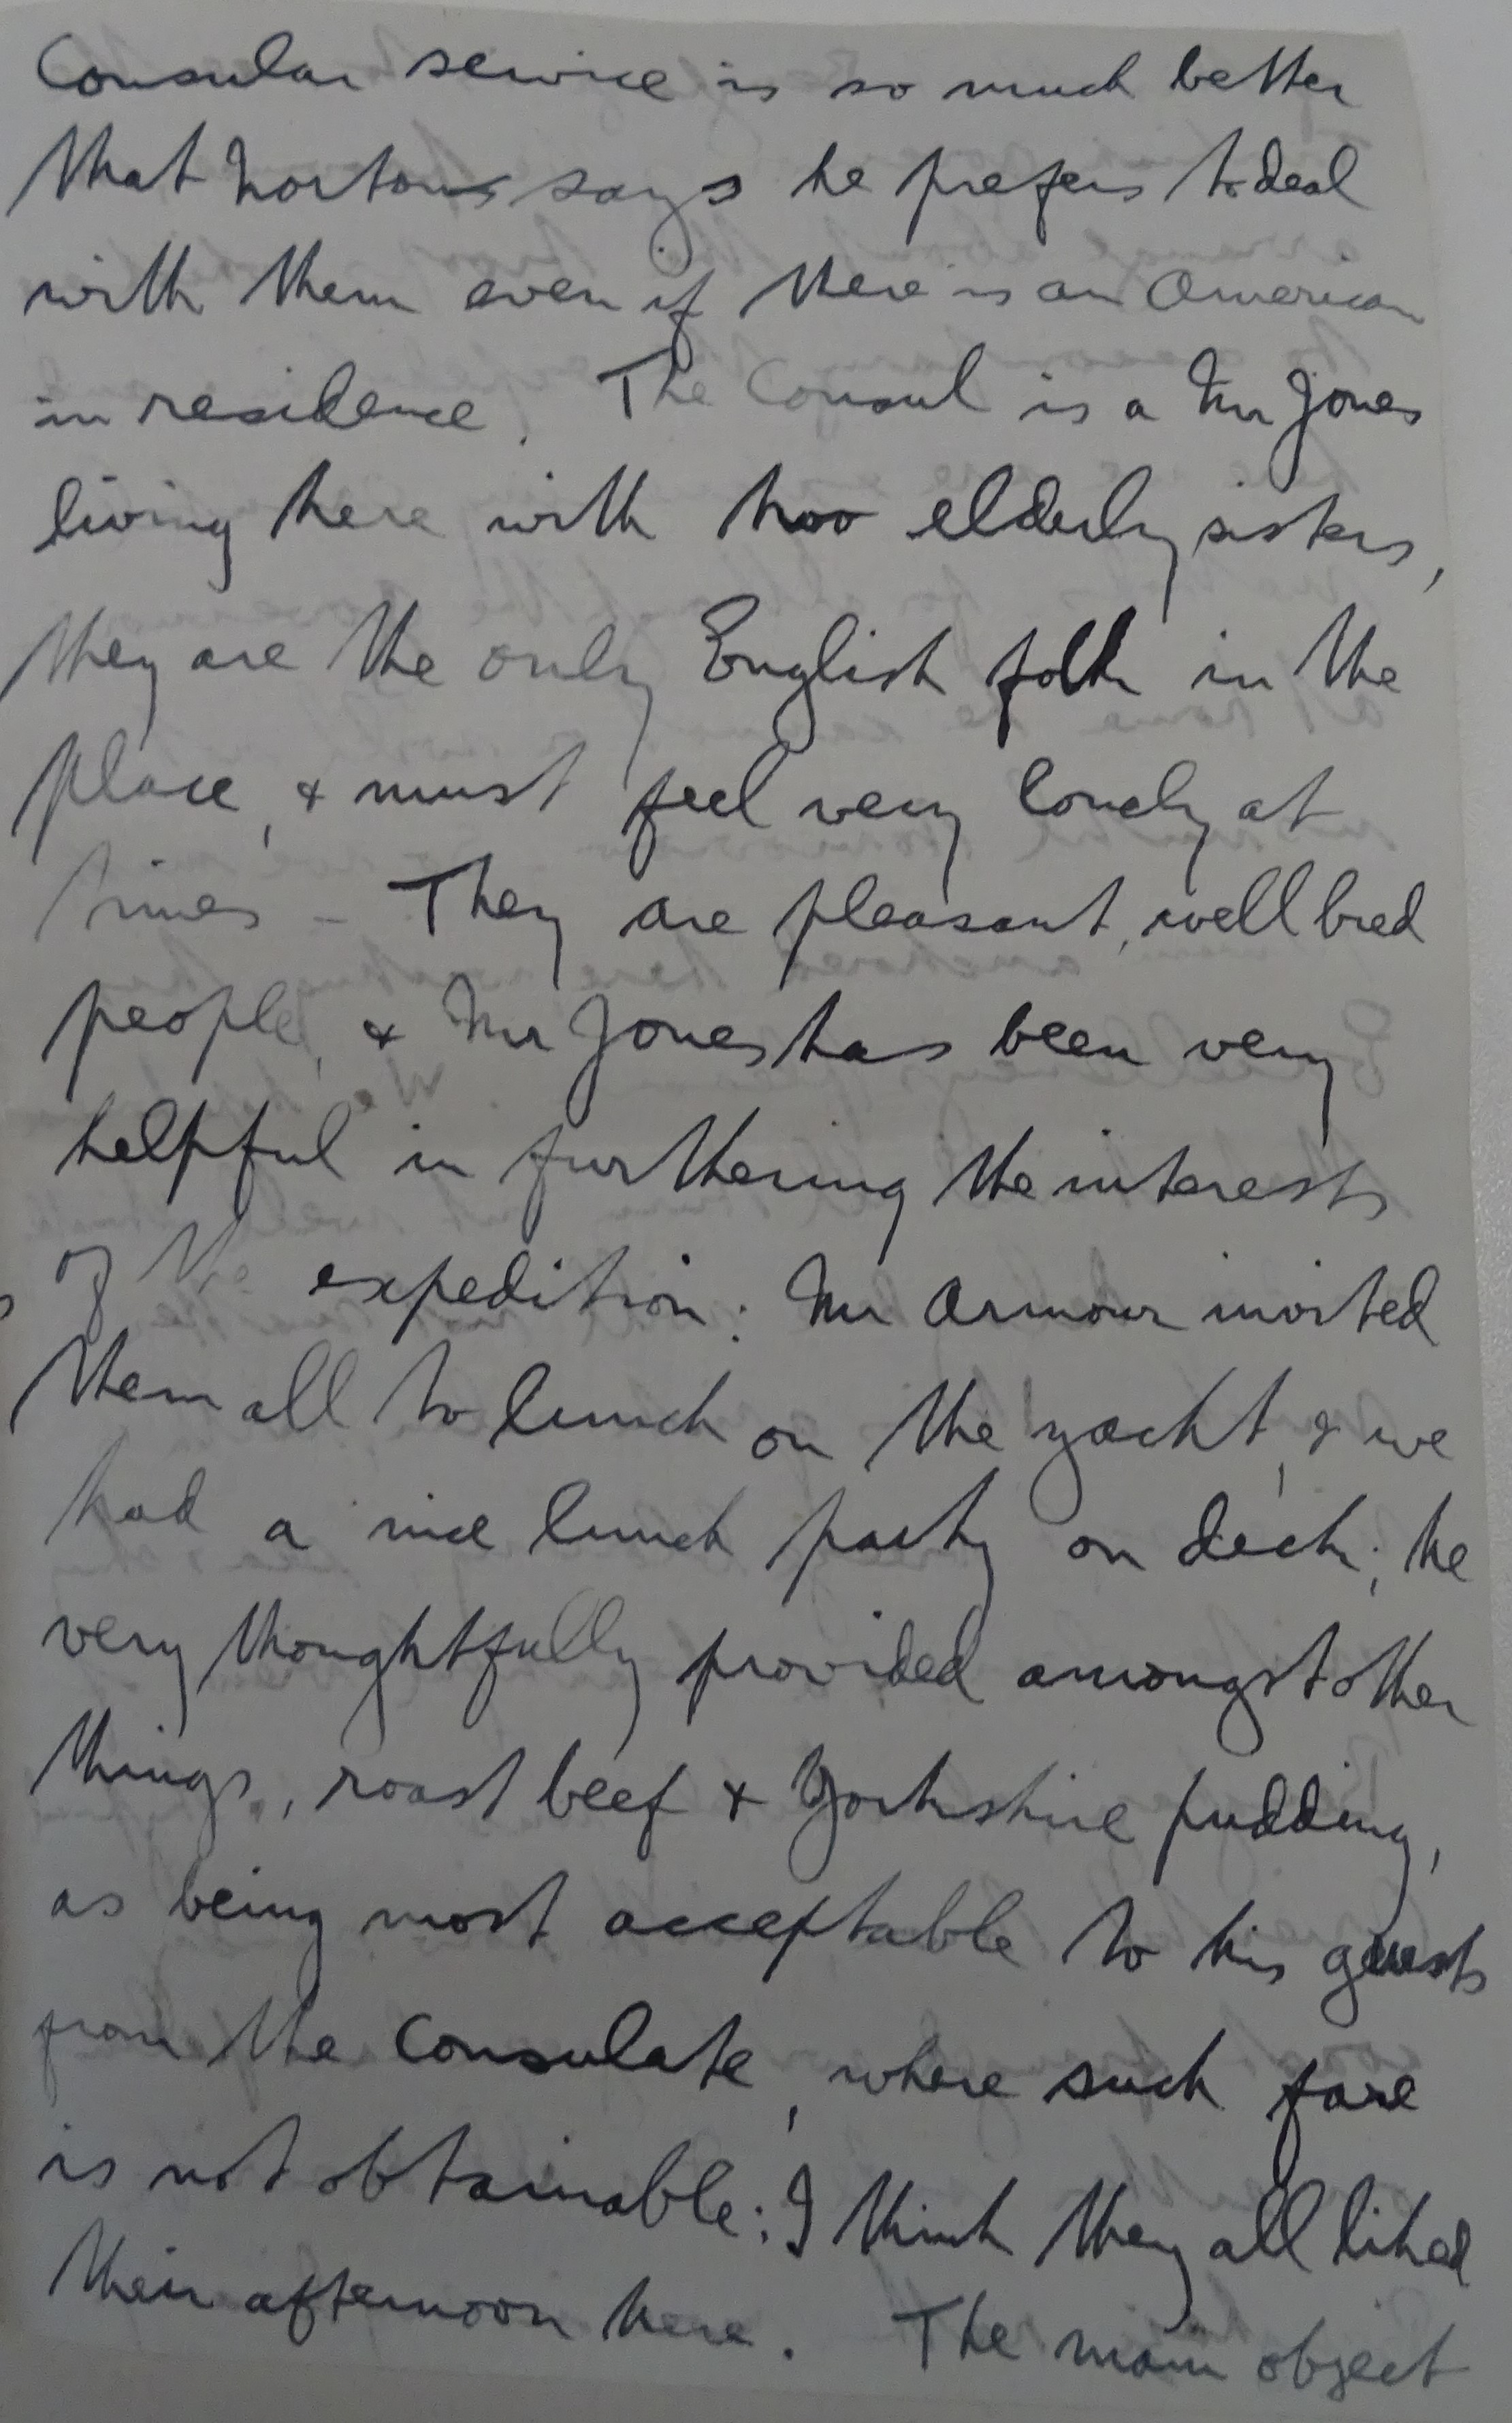 Consular service is so much better
that Nortons says he prefers to deal
with them even if there is an American
in residence. The Consul is a Mr Jones
living here with two elderly sisters,
they are the only English folk in the
place, & must feel very lonely at
times - They are pleasant, well bred
people, & Mr Jones has been very
helpful in furthering the interests
of the expedition: Mr Armour invited
them all to lunch on the yacht, & we
had a nice lunch party on deck; he
very thoughtfully provided amongst other
things, roast beef & Yorkshire pudding,
as being most acceptable to his guests
from the Consulate, where such fare
is not obtainable: I think they all liked
their afternoon here. The main object